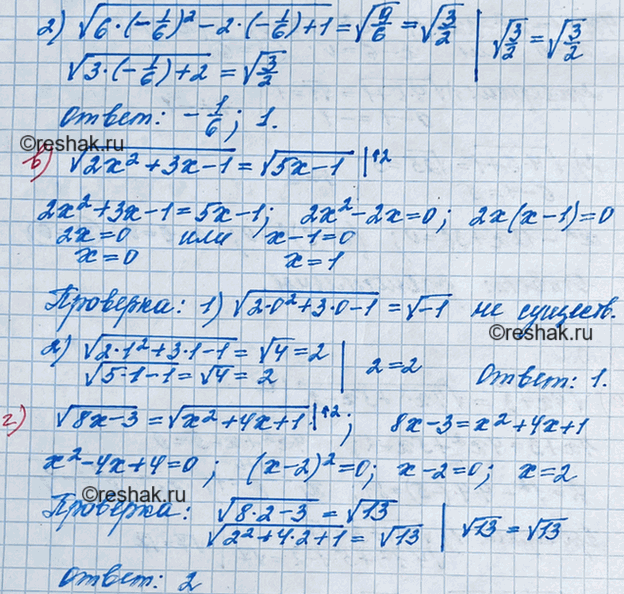 2) √(6·(-1/6)²-2·(-1/6)+1)=√(9/6)=√(3/2) | √(3/2)=√(3/2)
√(3·(-1/6)+2)=√(3/2)
Ответ: -1/6; 1.
©reshak.ru
в) √(2x²+3x-1)=√(5x-1) |↑2
2x²+3x-1=5x-1; 2x²-2x=0; 2x(x-1)=0
2x=0 или x-1=0
x=0 x=1
Проверка: 1) √(2·0²+3·0-1)=√-1 не существ.
©reshak.ru
2) √(2·1²+3·1-1)=√4=2 | 2=2
√(5·1-1)=√4=2 Ответ: 1.
г) √(8x-3)=√(x²+4x+1) |↑2; 8x-3=x²+4x+1
x²-4x+4=0; (x-2)²=0; x-2=0; x=2
©reshak.ru
Проверка: √(8·2-3)=√13 | √13=√13
√(2²+4·2+1)=√13
©reshak.ru
Ответ: 2